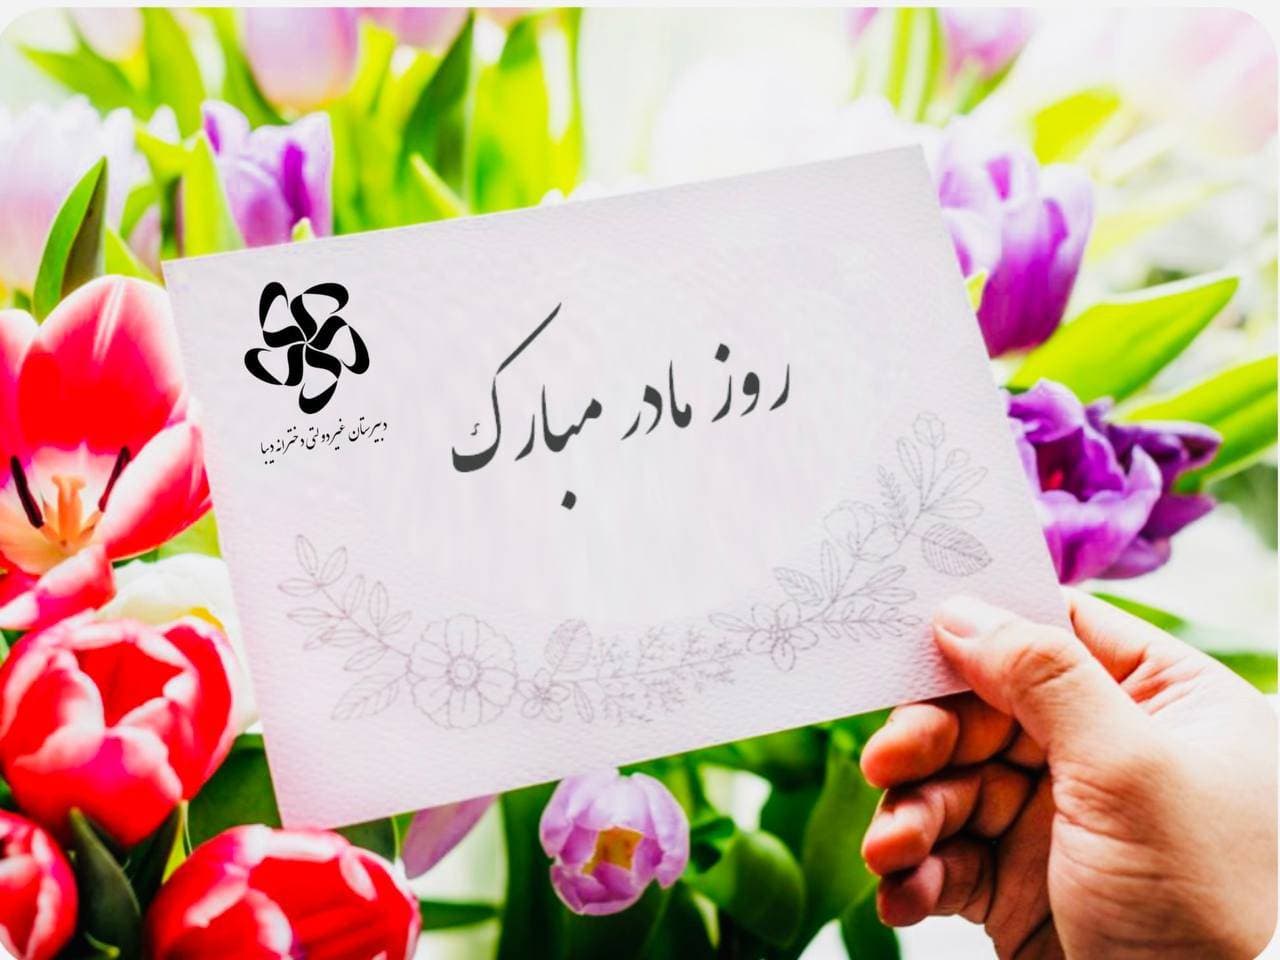 روز مادر مبارک
دبیرستان غیردولتی دخترانه دیبا